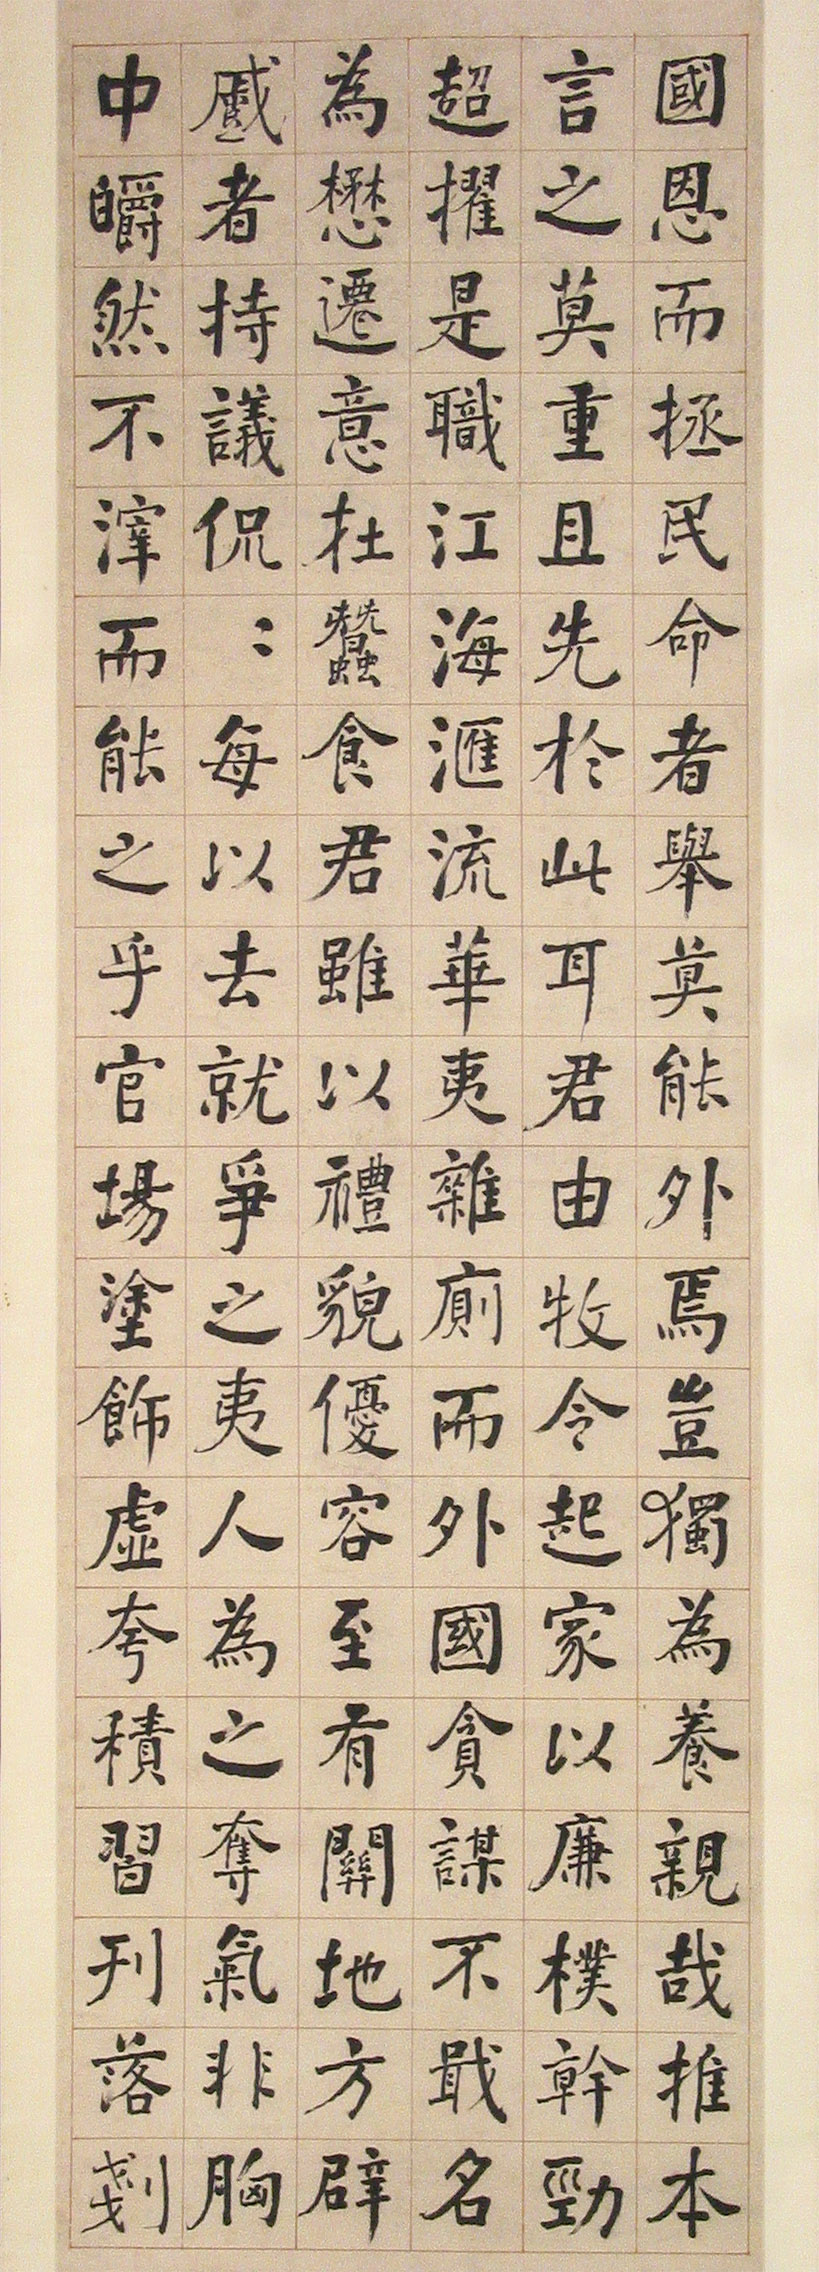 國恩而拯民命者舉莫能外焉豈獨為養親哉推本
言之莫重且先於此耳君由牧令起家以廉樸幹勁
超擢是職江海滙流華夷雜廁而外國貪謀不戢名
為懋遷意在蠶食君雖以禮貌優容至有關地方辟
戚者持議侃〻每以去就爭之夷人為之奪氣非胸
中皭然不滓而能之乎官場塗飾虛夸積習刊落剗